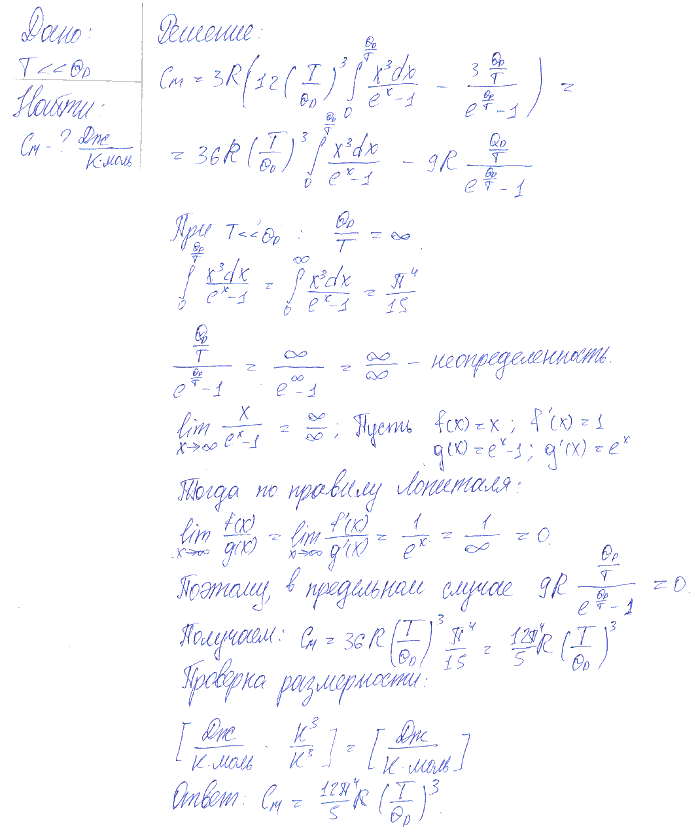 Дано:
T << Θ_D
Найти:
C_м - ? Дж/К·моль
Решение:
C_м = 3R(12(T/Θ_D)^3 ∫_0^{Θ_D/T} x^3dx/(e^x-1) - 3 (Θ_D/T)/(e^{Θ_D/T}-1)) =
= 36R(T/Θ_D)^3 ∫_0^{Θ_D/T} x^3dx/(e^x-1) - 9R (Θ_D/T)/(e^{Θ_D/T}-1)
При T<<Θ_D : Θ_D/T = ∞.
∫_0^{Θ_D/T} x^3dx/(e^x-1) = ∫_0^∞ x^3dx/(e^x-1) = π^4/15
(Θ_D/T)/(e^{Θ_D/T}-1) = ∞/(e^∞-1) = ∞/∞ - неопределенность.
lim_{x→∞} x/(e^x-1) = ∞/∞ ; Пусть f(x)=x ; f'(x)=1
g(x)=e^x-1 ; g'(x)=e^x
Тогда по правилу Лопиталя:
lim_{x→∞} f(x)/g(x) = lim_{x→∞} f'(x)/g'(x) = 1/e^x = 1/∞ = 0.
Поэтому, в предельном случае 9R (Θ_D/T)/(e^{Θ_D/T}-1) = 0.
Получаем: C_м = 36R(T/Θ_D)^3 π^4/15 = 12π^4/5 R(T/Θ_D)^3
Проверка размерности:
[Дж/К·моль · К^3/К^3] = [Дж/К·моль]
Ответ: C_м = 12π^4/5 R (T/Θ_D)^3.